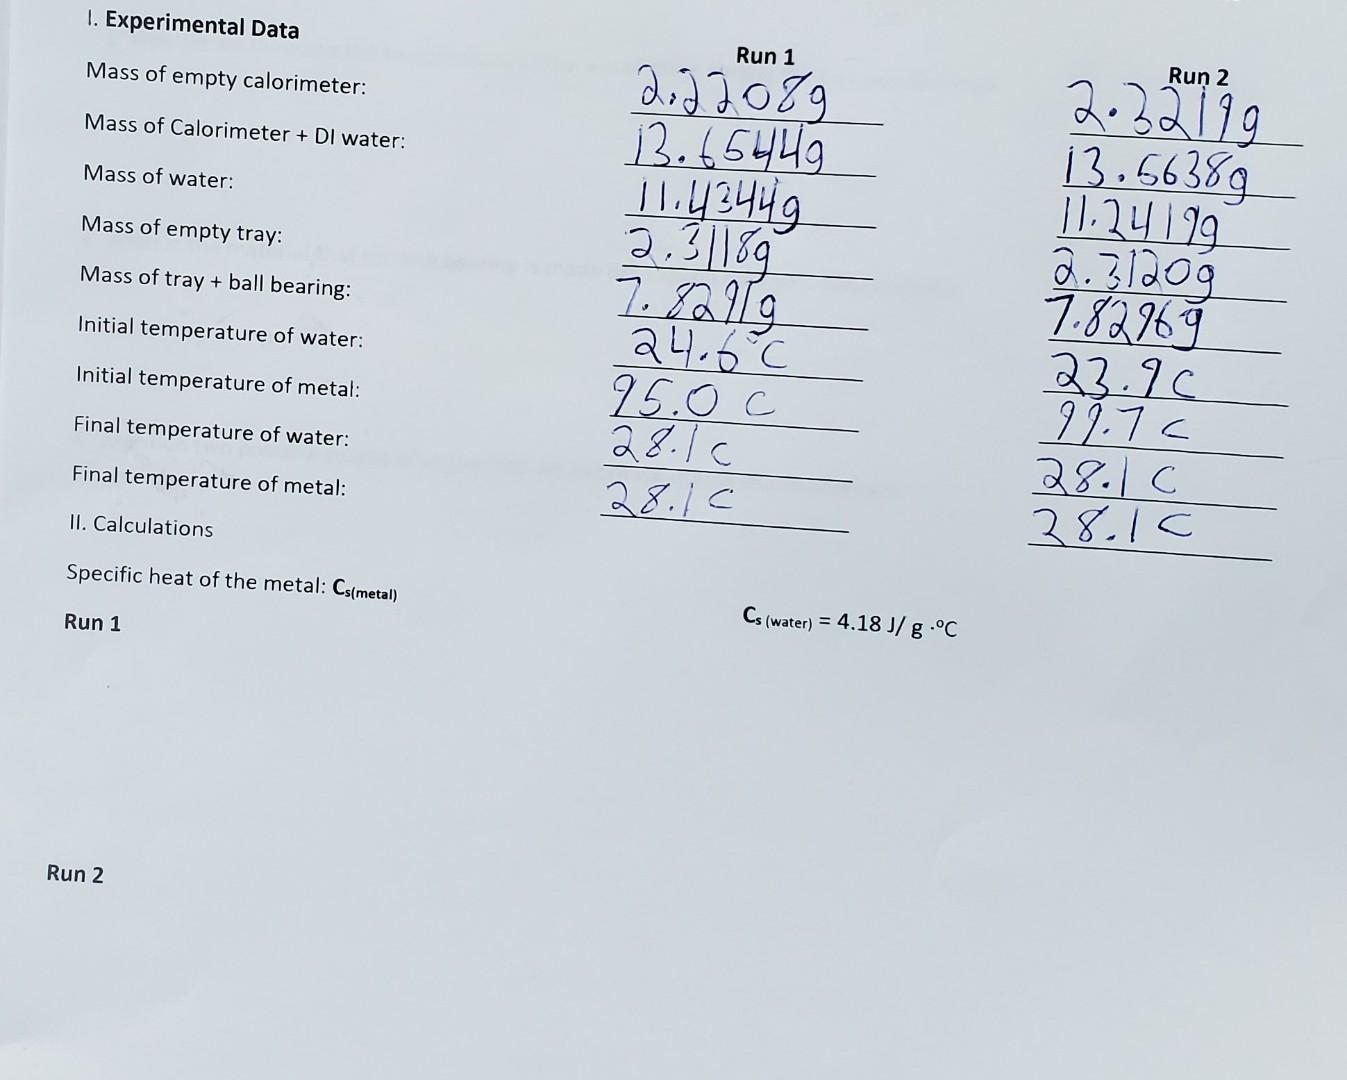 I. Experimental Data
Run 1 Run 2
Mass of empty calorimeter: 2.2208g 2.3219g
Mass of Calorimeter + DI water: 13.6544g 13.5638g
Mass of water: 11.4344g 11.2419g
Mass of empty tray: 2.3118g 2.3120g
Mass of tray + ball bearing: 7.8291g 7.8296g
Initial temperature of water: 24.6°C 23.9C
Initial temperature of metal: 95.0 C 99.7 C
Final temperature of water: 28.1 C 28.1 C
Final temperature of metal: 28.1 C 28.1 C
II. Calculations
Specific heat of the metal: Cs(metal)
Run 1 Cs (water) = 4.18 J/ g ·°C
Run 2